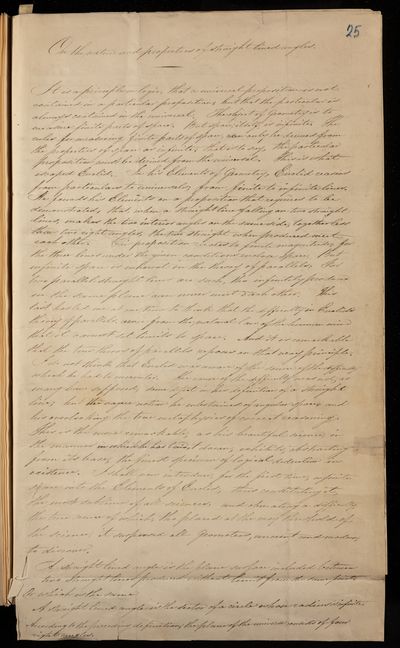 25
On the nature and properties of straight lined angles.
It is a principle in logic, that a universal proposition is not
contained in a particular proposition, but that the particular is
always contained in the universal. The object of Geometry is to
measure finite parts of space. But space itself is infinite. The
rules for measuring finite parts of space, can only be derived from
the properties of space as infinite; that is to say, the particular
proposition must be derived from the universal. This is what
escaped Euclid. In his Elements of Geometry, Euclid reasons
from particulars to universals, from finite to infinite lines.
He founds his Elements on a proposition that requires to be
demonstrated, that when a straight line falling on two straight
lines, makes the two interior angles on the same side, together less
than two right angles, the two straight lines produced meet
each other. This proposition leads to finite magnitudes, for
the three lines under the given conditions inclose space. But
infinite space is universal in the theory of parallels. The
two parallel straight lines are such, two infinitely produced
in the same plane can never meet each other. This
last has led me at one time to think that the difficulty in Euclid's
theory of parallels, arose from the natural law of the human mind
that it cannot set limits to space. And it is remarkable
that the true theory of parallels reposes on that very principle.
I do not think that Euclid was aware of the nature of the difficulty
which he had to encounter. The cause of the difficulty was not, as
many have supposed, some defect in the definition of a straight
line, but the vague notion he entertained of angular space, and
his overlooking the true metaphysics of general reasoning.
This is the more remarkable, as his beautiful science, in
the manner in which he has laid it down, exhibits, abstracting
from its bases, the finest specimen of logical deduction in
existence. I shall now introduce, for the first time, infinite
space into the Elements of Euclid, thus constituting it
the most sublime of all sciences, and obviating a difficulty
the true nature of which, tho' placed at the very threshold of
the science, it surpassed all Geometers, ancient and modern,
to discover.
A straight lined angle is the plane surface included between
two straight lines produced without limit from a same point
to which is the same
A straight lined angle is the sector of a circle whose radius is infinite.
According to the preceding definitions, the plane of the universe consists of four
right angles.